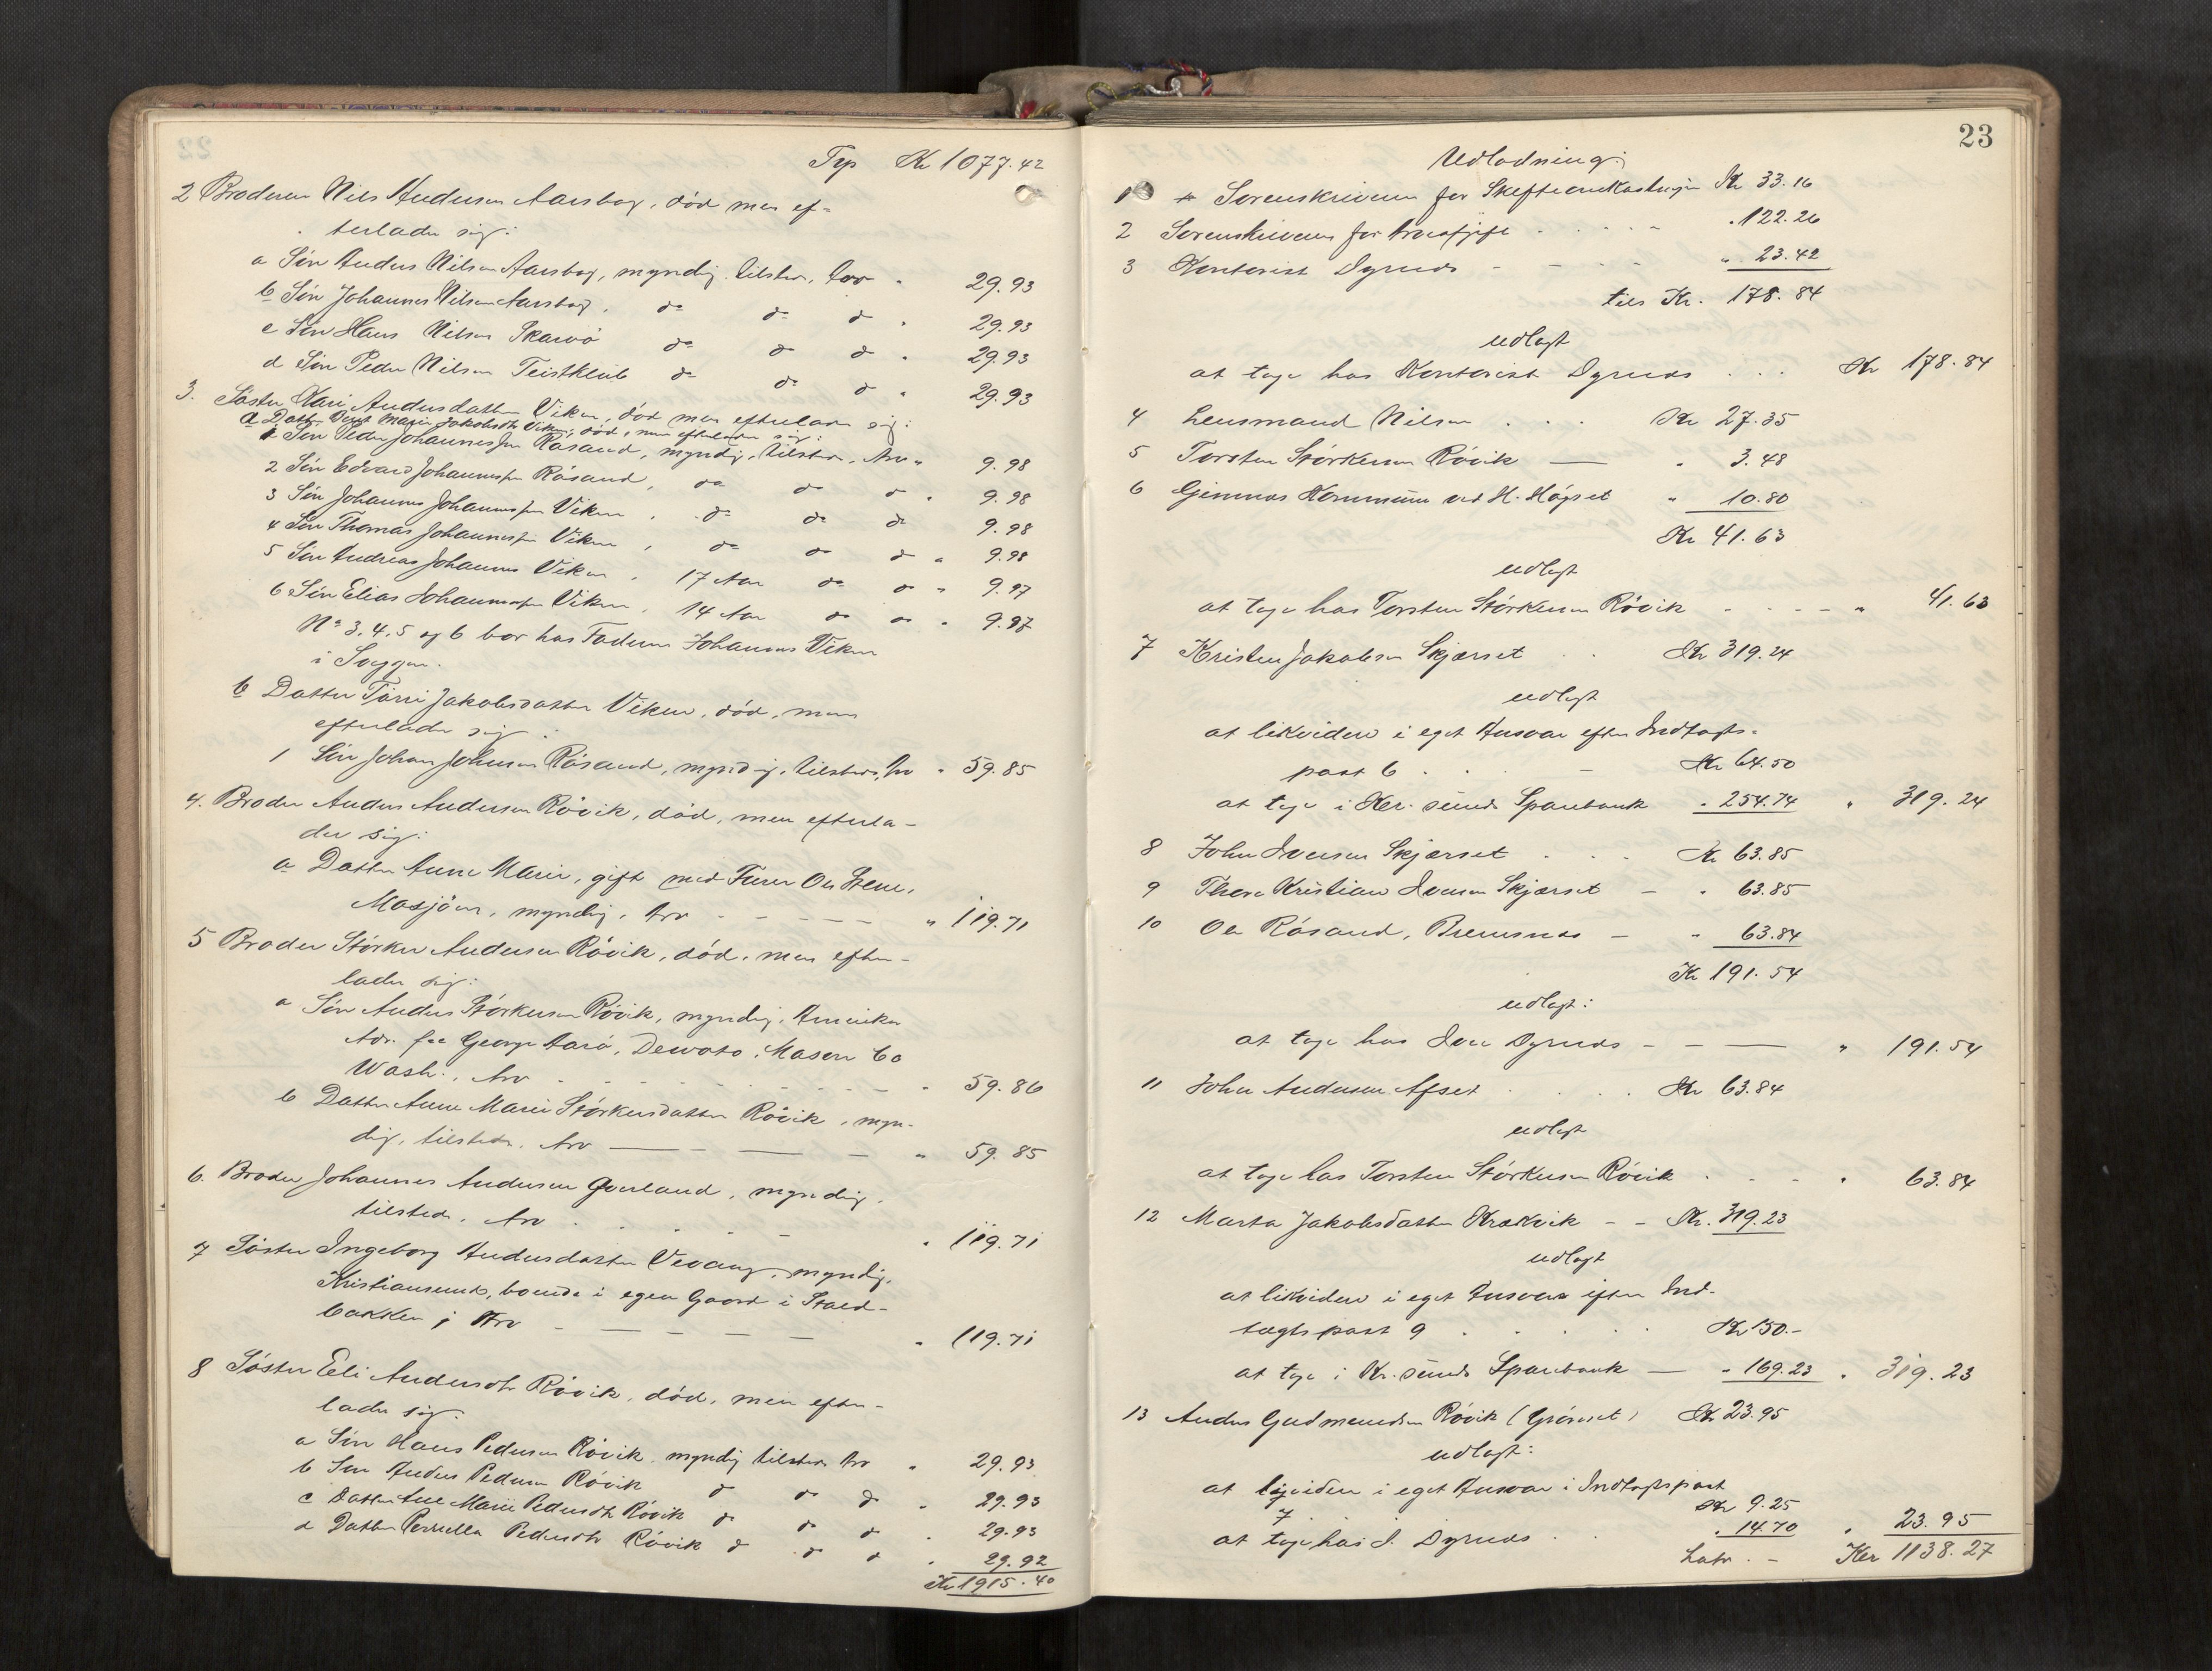 Trp Kr 1077.42
2 Broderen Nils Andersen Aarsbog, død men ef=
terlader sig:
a Søn Anders Nilsen Aarsbog, myndig, tilstede, Arv " 29.93
b Søn Johannes Nilsen Aarsbog, do do do " 29.93
c Søn Hans Nilsen Skarvø do do do " 29.93
d Søn Peder Nilsen Teistklub do do do " 29.93
3. Søster Kari Andersdatter Viken, død men efterlader sig:
a Datter Berit Marie Jakobsdtr Viken, død, men efterlader sig:
1 Søn Peder Johannessen Røsand, myndig, tilstede, Arv " 9.98
2 Søn Edvard Johannessen Røsand, do do do " 9.98
3 Søn Johannes Johannessen Viken, do do do 9.98
4 Søn Thomas Johannessen Viken, do do do " 9.98
5 Søn Andreas Johannes Viken, 17 Aar do do " 9.97
6 Søn Elias Johannessen Viken, 14 Aar do do " 9.97
No 3, 4, 5 og 6 bor hos Faderen Johannes Viken
i
b Datter Jakobsdatter Viken, død, men
efterlader sig:
1 Søn Johan Johnsen Røsand, myndig, tilstede, Arv " 59.85
4. Broder Anders Andersen Røvik, død, men efterla-
der sig:
a Datter Anne Marie, gift med Furer Ole Stene,
Mosjøen, myndig, Arv " 119.71
5 Broder Størker Andersen Røvik, død, men efter-
lader sig:
a Søn Anders Størkersen Røvik, myndig, Amerika
Adr. George Aarø, Dewato, Mason Co
Wash., Arv " 59.86
b Datter Anne Marie Størkersdatter Røvik, myn-
dig, tilstede, Arv " 59.85
6. Broder Johannes Andersen Øverland, myndig,
tilstede, Arv " 119.71
7 Søster Ingeborg Andersdatter Vevang, myndig,
Kristiansund, boende i egen Gaard i
bakken; Arv " 119.71
8 Søster Eli Andersdtr Røvik, død, men efter-
lader sig:
a Søn Hans Pedersen Røvik, myndig tilstede Arv " 29.93
b Søn Anders Pedersen Røvik do do do " 29.93
c Datter Ane Marie Pedersdtr Røvik do do do " 29.93
d Datter Pernella Pedersdtr Røvik do do do " 29.92
Kr 1915.40
23
Udlodning:
1 Sorenskriveren for Skifteomkostninger Kr 33.16
2 Sorenskriveren for Arveafgift " 122.26
3 Kontorist Dyrnes " 23.42
tils Kr. 178.84
udlagt
at tage hos Kontorist Dyrnes Kr 178.84
4 Lensmand Nilsen Kr 27.35
5 Torsten Størkersen Røvik " 3.48
6 Gimnes Kommune ved H. Høgset " 10.80
Kr 41.63
udlagt
at tage hos Torsten Størkersen Røvik " 41.63
7 Kristen Jakobsen Skjærset Kr 319.24
udlagt
at likvidere i eget Ansvar efter Indtægts=
post 6 Kr 64.50
at tage i Kr. sunds Sparebank " 254.74 " 319.24
8 John Iversen Skjærset Kr 63.85
9 Thore Kristian Iversen Skjærset " 63.85
10 Ole Røsand, Bremsnes " 63.84
Kr 191.54
udlagt:
at tage hos Iver Dyrnes " 191.54
11 John Andersen Afset Kr 63.84
udlagt
at tage hos Torsten Størkersen Røvik " 63.84
12 Marta Jakobsdatter Krakvik Kr. 319.23
udlagt
at likvidere i eget Ansvar efter Ind-
tægtspost 9 Kr 150.-
at tage i Kr. sunds Sparebank " 169.23 " 319.23
13 Anders Gudmundsen Røvik (Grønset) Kr 23.95
udlagt:
at likvidere i eget Ansvar i Indtægtspost
7 Kr 9.25
at tage hos I. Dyrnes " 14.70 " 23.95
Latr. - Kr 1138.27